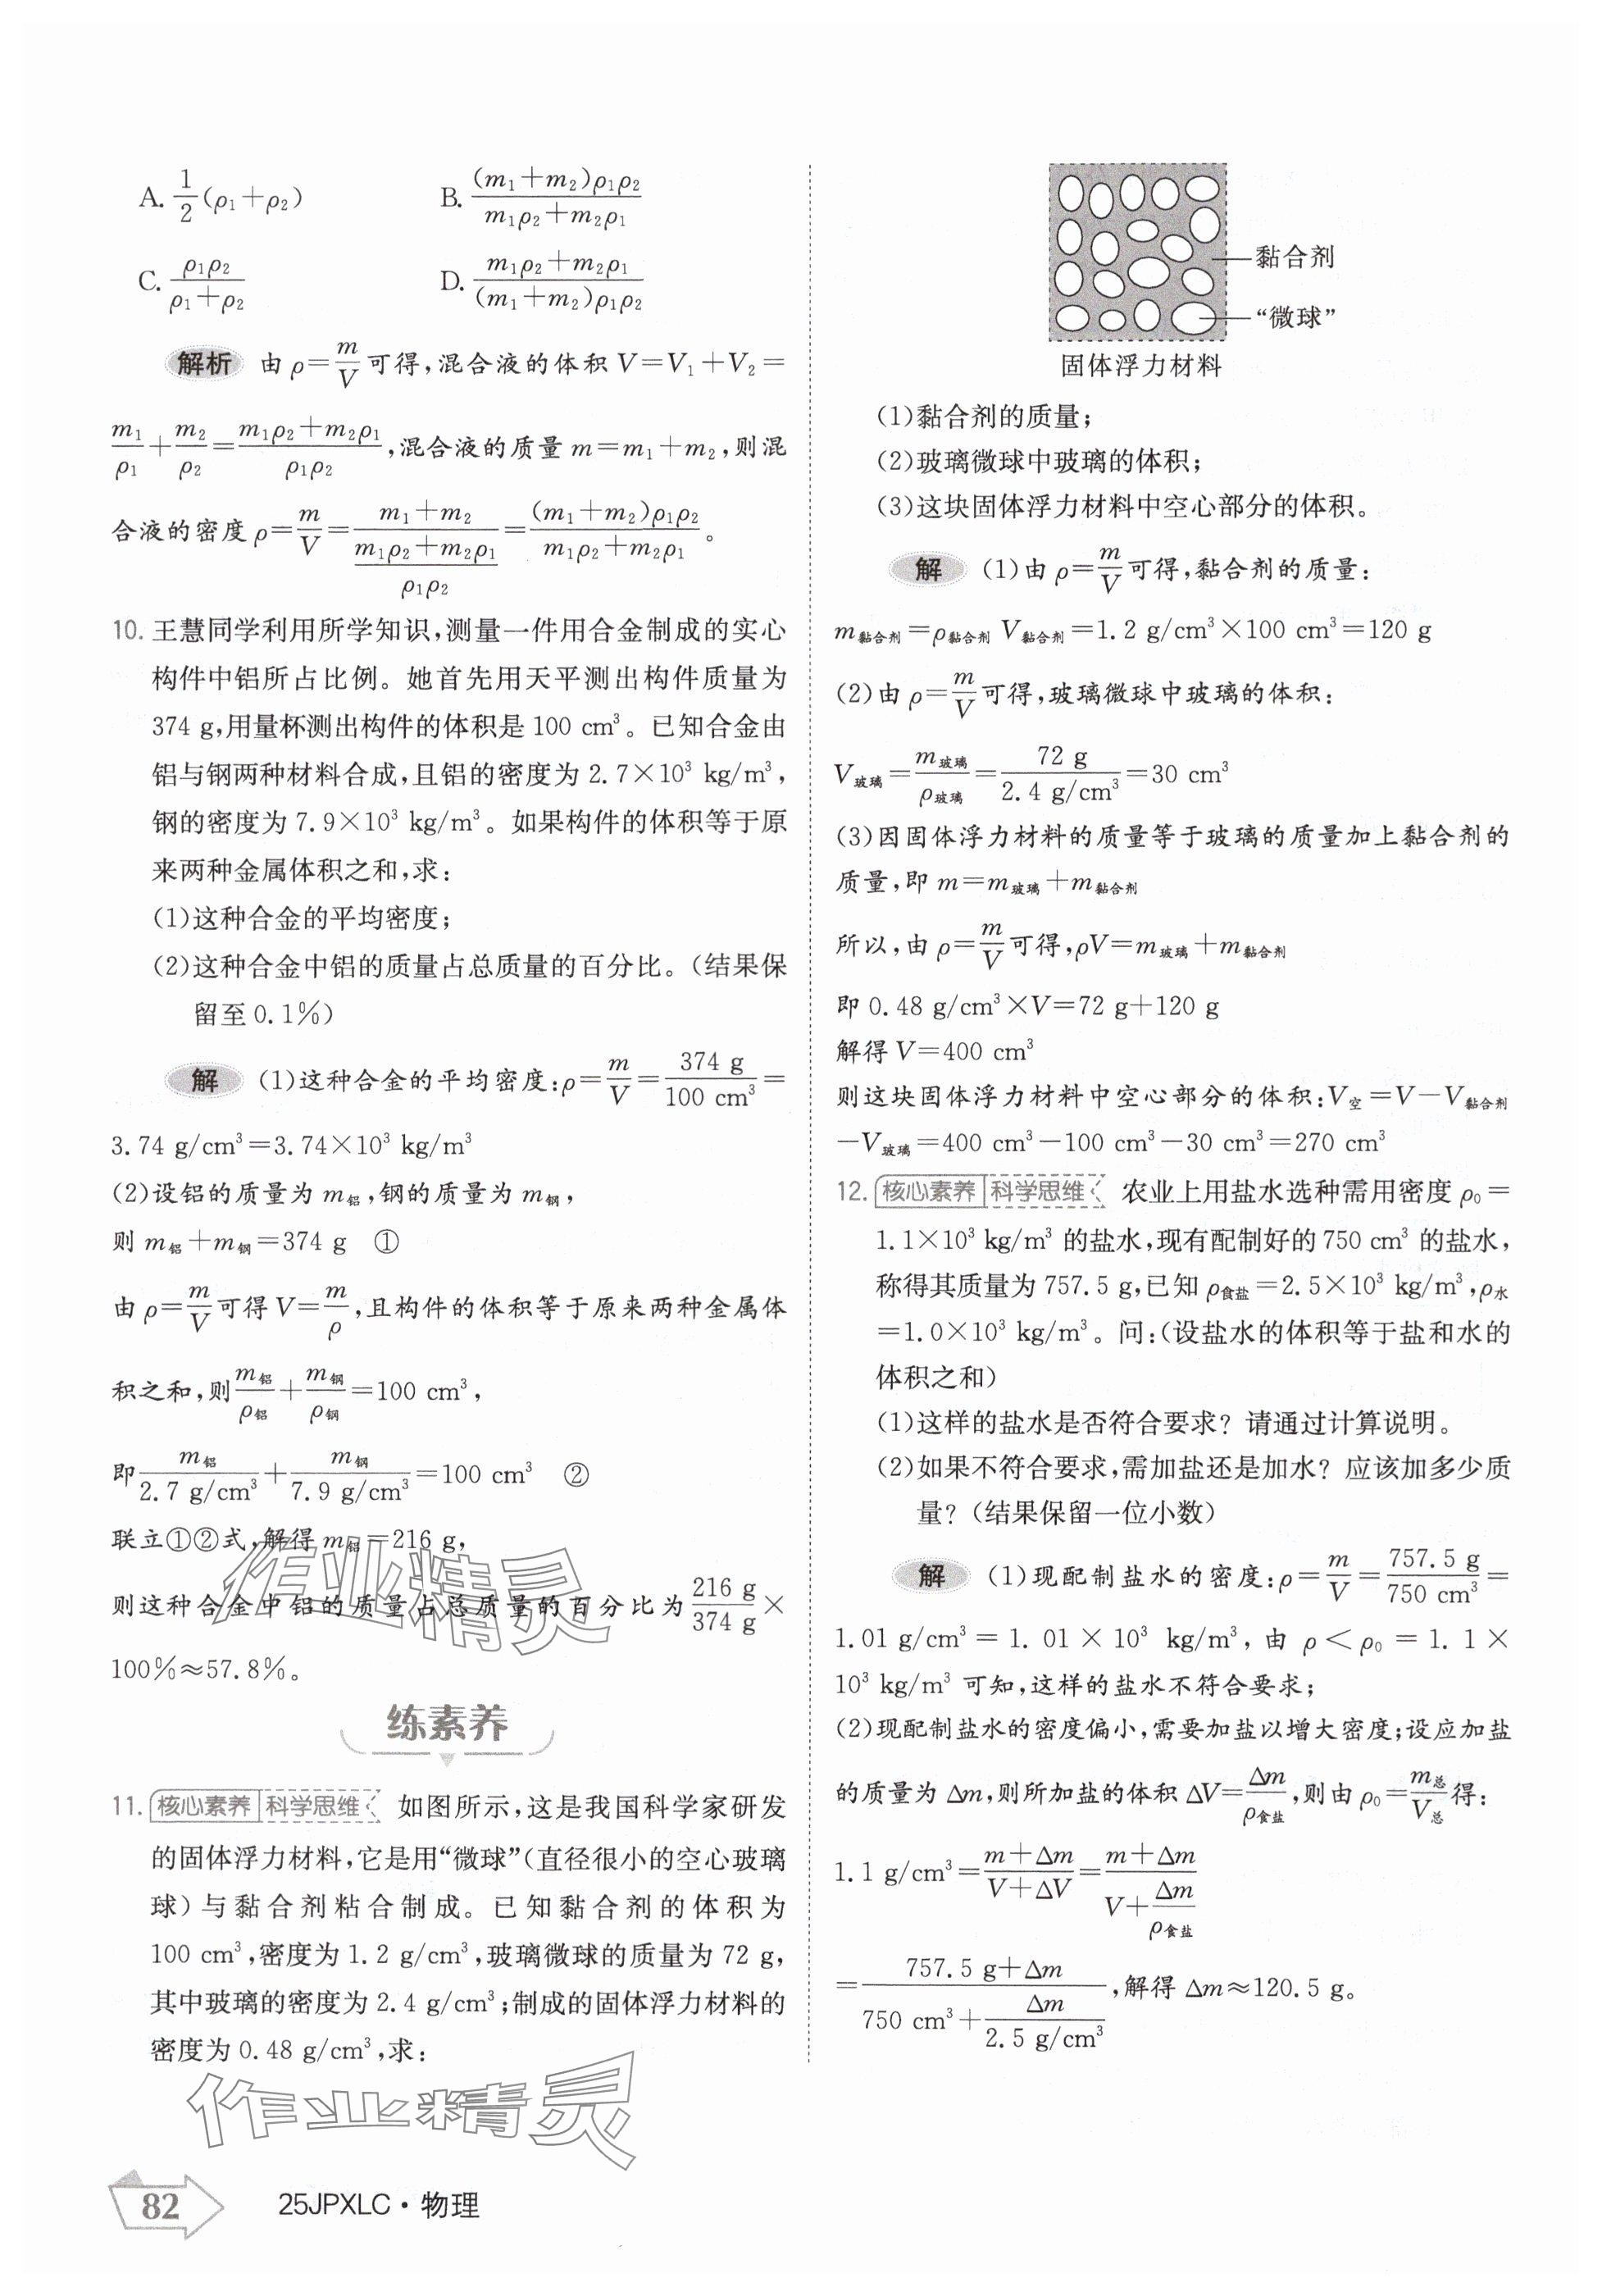 A. 1/2(ρ₁+ρ₂)
B. (m₁+m₂)ρ₁ρ₂/(m₁ρ₂+m₂ρ₁)
C. ρ₁ρ₂/(ρ₁+ρ₂)
D. (m₁ρ₂+m₂ρ₁)/((m₁+m₂)ρ₁ρ₂)
解析 由 ρ=m/V可得,混合液的体积 V=V₁+V₂=
m₁/ρ₁+m₂/ρ₂=(m₁ρ₂+m₂ρ₁)/(ρ₁ρ₂),混合液的质量 m=m₁+m₂,则混
合液的密度 ρ=m/V=(m₁+m₂)/((m₁ρ₂+m₂ρ₁)/(ρ₁ρ₂))=(m₁+m₂)ρ₁ρ₂/(m₁ρ₂+m₂ρ₁)。
10. 王慧同学利用所学知识,测量一件用合金制成的实心
构件中铝所占比例。她首先用天平测出构件质量为
374 g,用量杯测出构件的体积是 100 cm³。已知合金由
铝与钢两种材料合成,且铝的密度为 2.7×10³ kg/m³,
钢的密度为 7.9×10³ kg/m³。如果构件的体积等于原
来两种金属体积之和,求:
(1)这种合金的平均密度;
(2)这种合金中铝的质量占总质量的百分比。(结果保
留至 0.1%)
解 (1)这种合金的平均密度:ρ=m/V=374 g/100 cm³=
3.74 g/cm³=3.74×10³ kg/m³
(2)设铝的质量为 m铝,钢的质量为 m钢,
则 m铝+m钢=374 g ①
由 ρ=m/V可得 V=m/ρ,且构件的体积等于原来两种金属体
积之和,则m铝/ρ铝+m钢/ρ钢=100 cm³,
即m铝/2.7 g/cm³+m钢/7.9 g/cm³=100 cm³ ②
联立①②式,解得 m铝=216 g,
则这种合金中铝的质量占总质量的百分比为216 g/374 g×
100%≈57.8%。
练素养
11. 核心素养 科学思维 如图所示,这是我国科学家研发
的固体浮力材料,它是用“微球”(直径很小的空心玻璃
球)与黏合剂粘合制成。已知黏合剂的体积为
100 cm³,密度为 1.2 g/cm³,玻璃微球的质量为 72 g,
其中玻璃的密度为 2.4 g/cm³;制成的固体浮力材料的
密度为 0.48 g/cm³,求:
作业精灵
作业精灵
82
25JPXLC·物理
黏合剂
“微球”
固体浮力材料
(1)黏合剂的质量;
(2)玻璃微球中玻璃的体积;
(3)这块固体浮力材料中空心部分的体积。
解 (1)由 ρ=m/V可得,黏合剂的质量:
m黏合剂=ρ黏合剂 V黏合剂=1.2 g/cm³×100 cm³=120 g
(2)由 ρ=m/V可得,玻璃微球中玻璃的体积:
V玻璃=m玻璃/ρ玻璃=72 g/2.4 g/cm³=30 cm³
(3)因固体浮力材料的质量等于玻璃的质量加上黏合剂的
质量,即 m=m玻璃+m黏合剂
所以,由 ρ=m/V可得,ρV=m玻璃+m黏合剂
即 0.48 g/cm³×V=72 g+120 g
解得 V=400 cm³
则这块固体浮力材料中空心部分的体积:V空=V-V黏合剂
-V玻璃=400 cm³-100 cm³-30 cm³=270 cm³
12. 核心素养 科学思维 农业上用盐水选种需用密度 ρ₀=
1.1×10³ kg/m³ 的盐水,现有配制好的 750 cm³ 的盐水,
称得其质量为 757.5 g,已知 ρ食盐=2.5×10³ kg/m³,ρ水
=1.0×10³ kg/m³。问:(设盐水的体积等于盐和水的
体积之和)
(1)这样的盐水是否符合要求?请通过计算说明。
(2)如果不符合要求,需加盐还是加水?应该加多少质
量?(结果保留一位小数)
解 (1)现配制盐水的密度:ρ=m/V=757.5 g/750 cm³=
1.01 g/cm³=1.01×10³ kg/m³,由 ρ<ρ₀=1.1×
10³ kg/m³ 可知,这样的盐水不符合要求;
(2)现配制盐水的密度偏小,需要加盐以增大密度;设应加盐
的质量为 Δm,则所加盐的体积 ΔV=Δm/ρ食盐,则由 ρ₀=m总/V总得:
1.1 g/cm³=(m+Δm)/(V+ΔV)=(m+Δm)/(V+Δm/ρ食盐)
=(757.5 g+Δm)/(750 cm³+Δm/2.5 g/cm³),解得 Δm≈120.5 g。